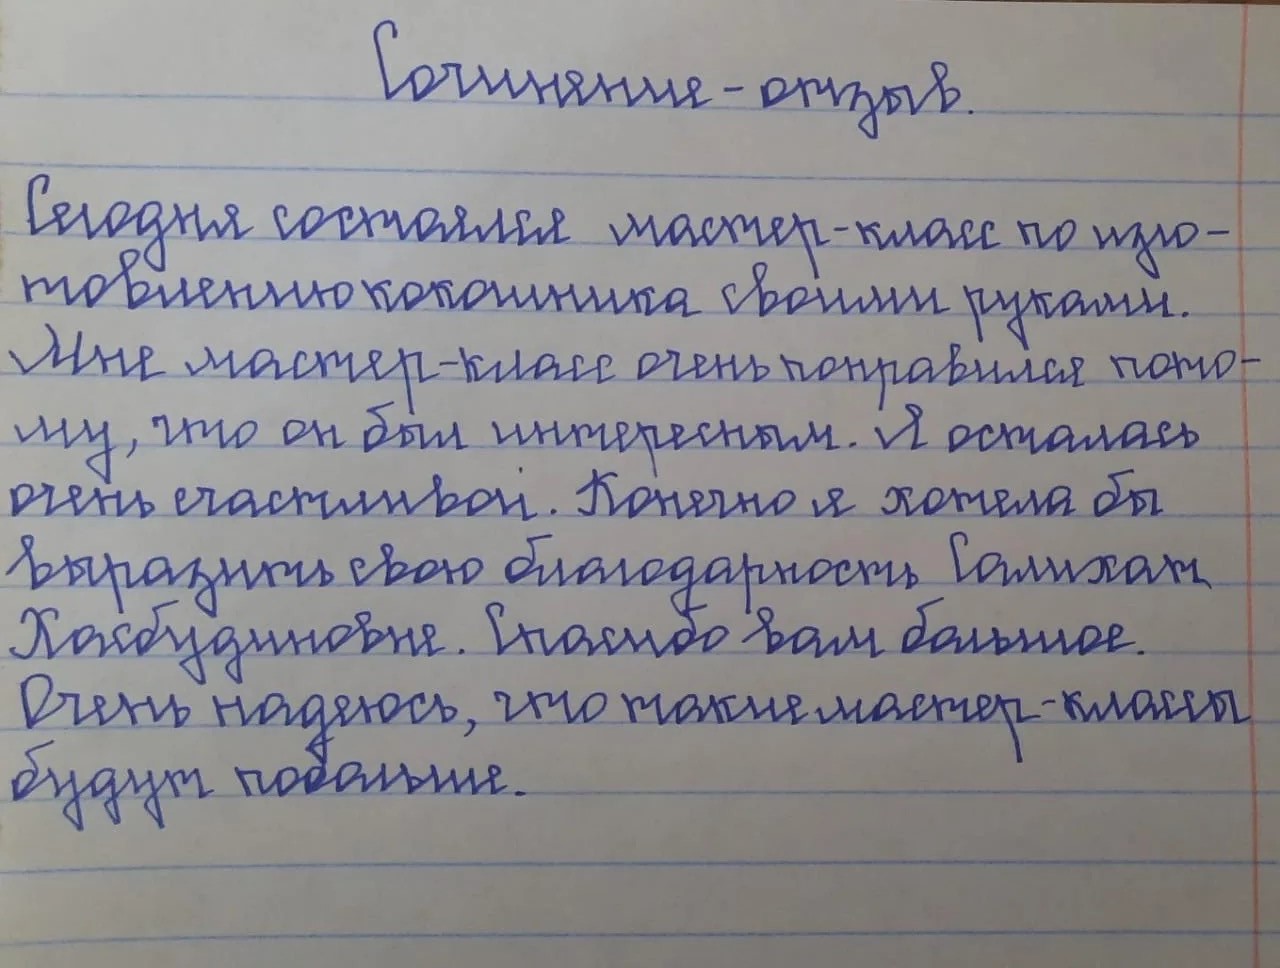 Сочинение-отзыв.
Сегодня состоялся мастер-класс по изго-
товлению кокошника своими руками.
Мне мастер-класс очень понравился пото-
му, что он был интересным. Я осталась
очень счастливой. Конечно я хотела бы
выразить свою благодарность Салихат
Хасбудиновне. Спасибо вам большое.
Очень надеюсь, что такие мастер-классы
будут побольше.